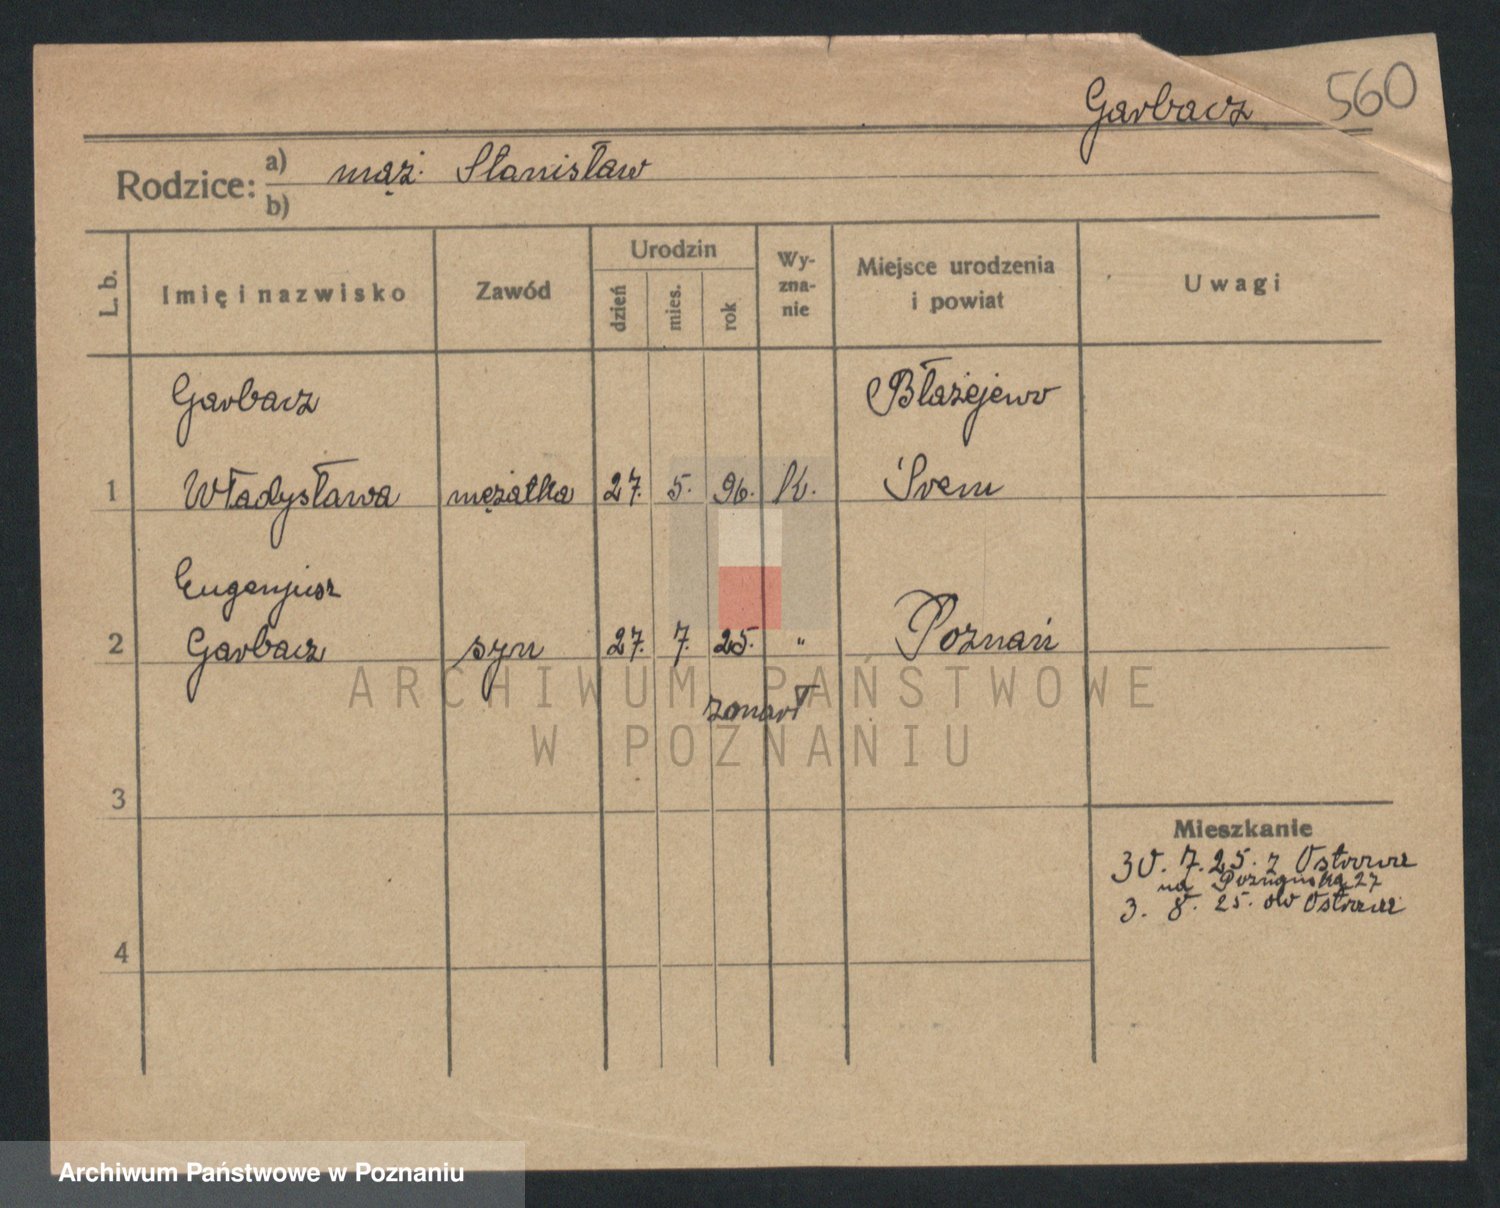 Garbacz 560
Rodzice: a) mąż. Stanisław
b)
L. b. Imię i nazwisko Zawód Urodzin dzień mies. rok Wy-zna-nie Miejsce urodzenia i powiat Uwagi
Garbacz Błażejewo
1 Władysława mężatka 27. 5. 96. k. Śrem
Eugenjusz
2 Garbacz syn 27. 7. 25. " Poznań
ARCHIWUM PAŃSTWOWE
zmarł
W POZNANIU
3
Mieszkanie
30. 7. 25. z Ostrowa
na 27
3. 8. 25. do Ostrowa
4
Archiwum Państwowe w Poznaniu